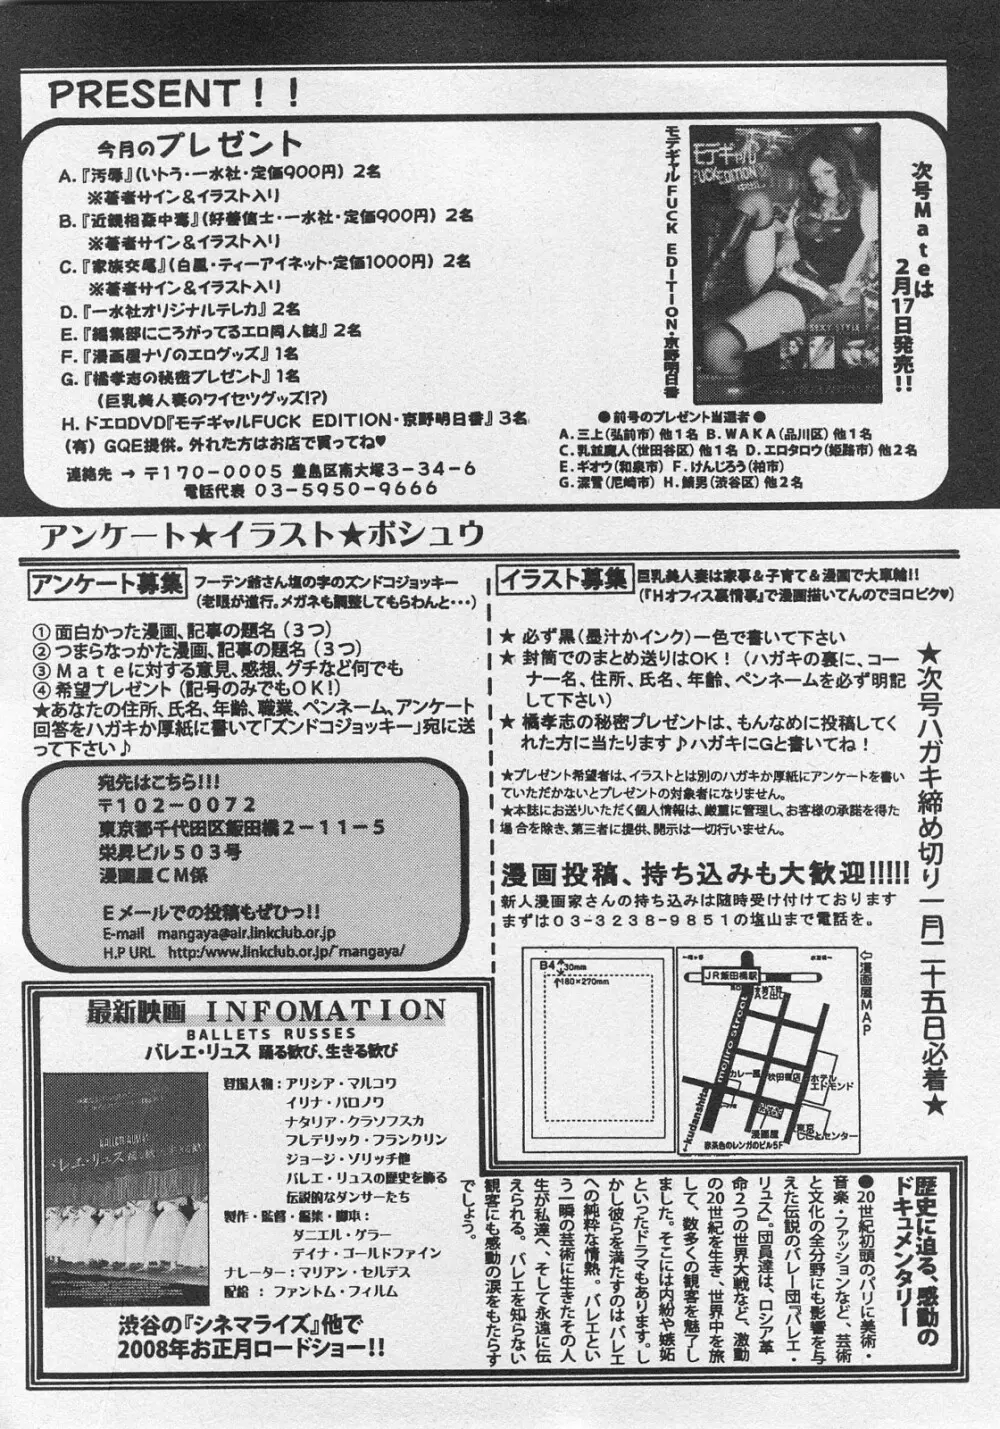 PRESENT！！
今月のプレゼント
A.『汚辱』(いトう・一水社・定価900円) 2名
※著者サイン＆イラスト入り
B.『近親相姦中毒』(好善信士・一水社・定価900円) 2名
※著者サイン＆イラスト入り
C.『家族交尾』(白風・ティーアイネット・定価1000円) 2名
※著者サイン＆イラスト入り
D.『一水社オリジナルテレカ』2名
E.『編集部にころがってるエロ同人誌』2名
F.『漫画屋ナゾのエログッズ』1名
G.『橘孝志の秘密プレゼント』1名
(巨乳美人妻のワイセツグッズ!?)
H.ドエロDVD『モデギャルFUCK EDITION・京野明日香』3名
(有) GQE提供。外れた方はお店で買ってね♥
連絡先 → 〒170-0005 豊島区南大塚3-34-6
電話代表 03-5950-9666
モデギャルFUCK EDITION・京野明日香
モデギャル
FUCK EDITION
SEXY STYLE
次号Mateは
2月17日発売!!
●前号のプレゼント当選者●
A.三上(弘前市)他1名 B.WAKA(品川区)他1名
C.乳並魔人(世田谷区)他1名 D.エロタロウ(姫路市)他2名
E.ギオウ(和泉市) F.けんじろう(柏市)
G.深雪(尼崎市) H.鯖男(渋谷区)他2名
アンケート★イラスト★ボシュウ
アンケート募集
フーテン爺さん塩の字のズンドコジョッキー
(老眼が進行。メガネも調整してもらわんと・・・)
① 面白かった漫画、記事の題名 (3つ)
② つまらなっかた漫画、記事の題名 (3つ)
③ Mateに対する意見、感想、グチなど何でも
④ 希望プレゼント (記号のみでもOK!)
★あなたの住所、氏名、年齢、職業、ペンネーム、アンケート
回答をハガキか厚紙に書いて「ズンドコジョッキー」宛に送
って下さい♪
宛先はこちら!!!
〒102-0072
東京都千代田区飯田橋2-11-5
栄昇ビル503号
漫画屋CM係
Eメールでの投稿もぜひっ!!
E-mail mangaya@air.linkclub.or.jp
H.P URL http:/www.linkclub.or.jp/~mangaya/
イラスト募集
巨乳美人妻は家事＆子育て＆漫画で大車輪!!
(『Hオフィス裏情事』で漫画描いてんのでヨロピク♥)
★ 必ず黒(墨汁かインク)一色で書いて下さい
★ 封筒でのまとめ送りはOK！(ハガキの裏に、コー
ナー名、住所、氏名、年齢、ペンネームを必ず明記
して下さい)
★ 橘孝志の秘密プレゼントは、もんなめに投稿してく
れた方に当たります♪ハガキにGと書いてね！
★プレゼント希望者は、イラストとは別のハガキか厚紙にアンケートを書い
ていただかないとプレゼントの対象者になりません。
★本誌にお送りいただく個人情報は、厳重に管理し、お客様の承諾を得た
場合を除き、第三者に提供、開示は一切行いません。
漫画投稿、持ち込みも大歓迎!!!!!
新人漫画家さんの持ち込みは随時受け付けております
まずは03-3238-9851の塩山まで電話を。
★次号ハガキ締め切り一月二十五日必着★
B4
30mm
180×270mm
⇦漫画屋MAP
JR飯田橋駅
地下鉄
A2出口
mojiro street
カレー屋
秋田書店
ホテル
エドモンド
漫画屋
東京
しごとセンター
←kudanshita
赤茶色のレンガのビル5F
最新映画 INFOMATION
BALLETS RUSSES
バレエ・リュス 踊る歓び、生きる歓び
BALLETS RUSSES
バレエ・リュス
登場人物：アリシア・マルコワ
イリナ・バロノワ
ナタリア・クラソフスカ
フレデリック・フランクリン
ジョージ・ゾリッチ他
バレエ・リュスの歴史を飾る
伝説的なダンサーたち
製作・監督・編集・脚本：
ダニエル・ゲラー
デイナ・ゴールドファイン
ナレーター：マリアン・セルデス
配給：ファントム・フィルム
渋谷の『シネマライズ』他で
2008年お正月ロードショー!!
歴史に迫る、感動の
ドキュメンタリー
●20世紀初頭のパリに美術・
音楽・ファッションなど、芸術
と文化の全分野にも影響を与
えた伝説のバレー団『バレエ・
リュス』。団員達は、ロシア革
命2つの世界大戦など、激動
の20世紀を生き、世界中を旅
して、数多くの観客を魅了し
ました。そこには内紛や嫉妬
といったドラマもあります。し
かし彼らを満たすのはバレエ
への純粋な情熱。バレエとい
う一瞬の芸術に生きたその人
生が私達へ、そして永遠に伝
えられる。バレエを知らない
観客にも感動の涙をもたらす
でしょう。